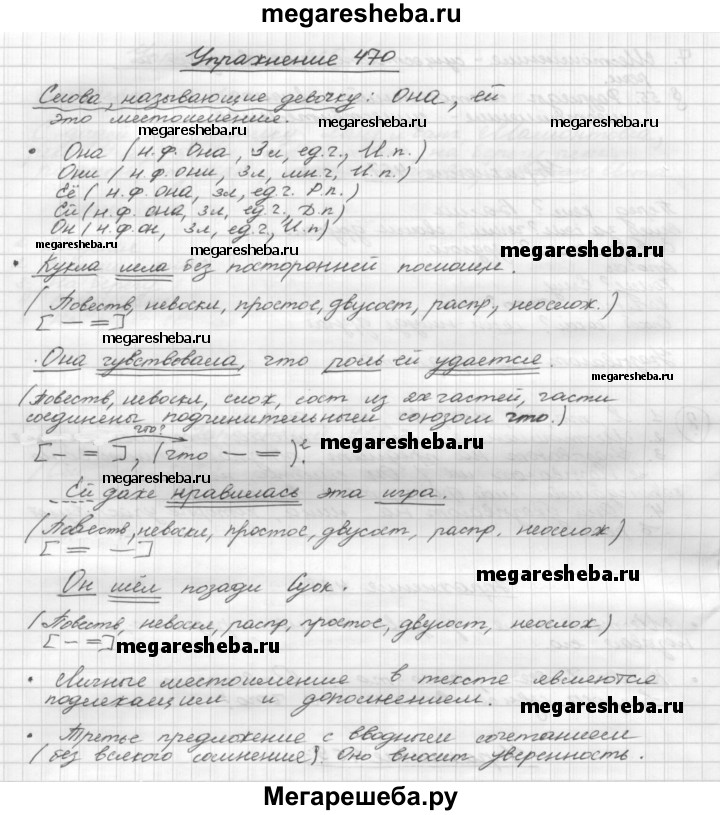 megaresheba.ru
Упражнение 470
Слова, называющие девочку: она, ей
это местоимение.
megaresheba.ru megaresheba.ru megaresheba.ru
• Она (н.ф. Она, 3л, ед.ч., И.п.)
Они (н.ф. они, 3л, мн.ч, И.п.)
Её (н.ф. она, 3л, ед.ч. Р.п.)
Ей (н.ф. она, 3л, ед.ч., Д.п)
Он (н.ф. он, 3л, ед.ч, И.п)
megaresheba.ru megaresheba.ru megaresheba.ru
• Кукла шла без посторонней помощи.
(Повеств, невоскл, простое, двусост, распр, неослож.)
[— =]
megaresheba.ru
Она чувствовала, что роль ей удаётся.
megaresheba.ru
(Повеств, невоскл, слож, сост из 2х частей, части
соединены подчинительным союзом что.)
что?
[— =], (что — =).
megaresheba.ru
megaresheba.ru
Ей даже нравилась эта игра.
(Повеств, невоскл, простое, двусост, распр. неослож)
[= —]
Он шёл позади Суок.
megaresheba.ru
(Повеств, невоскл, распр, простое, двусост, неослож)
[— =] megaresheba.ru
• Личные местоимение в тексте являются
подлежащим и дополнением.
megaresheba.ru
• Третье предложение с вводным сочетанием
(без всякого сомнения). Оно вносит уверенность.
Мегарешеба.ру